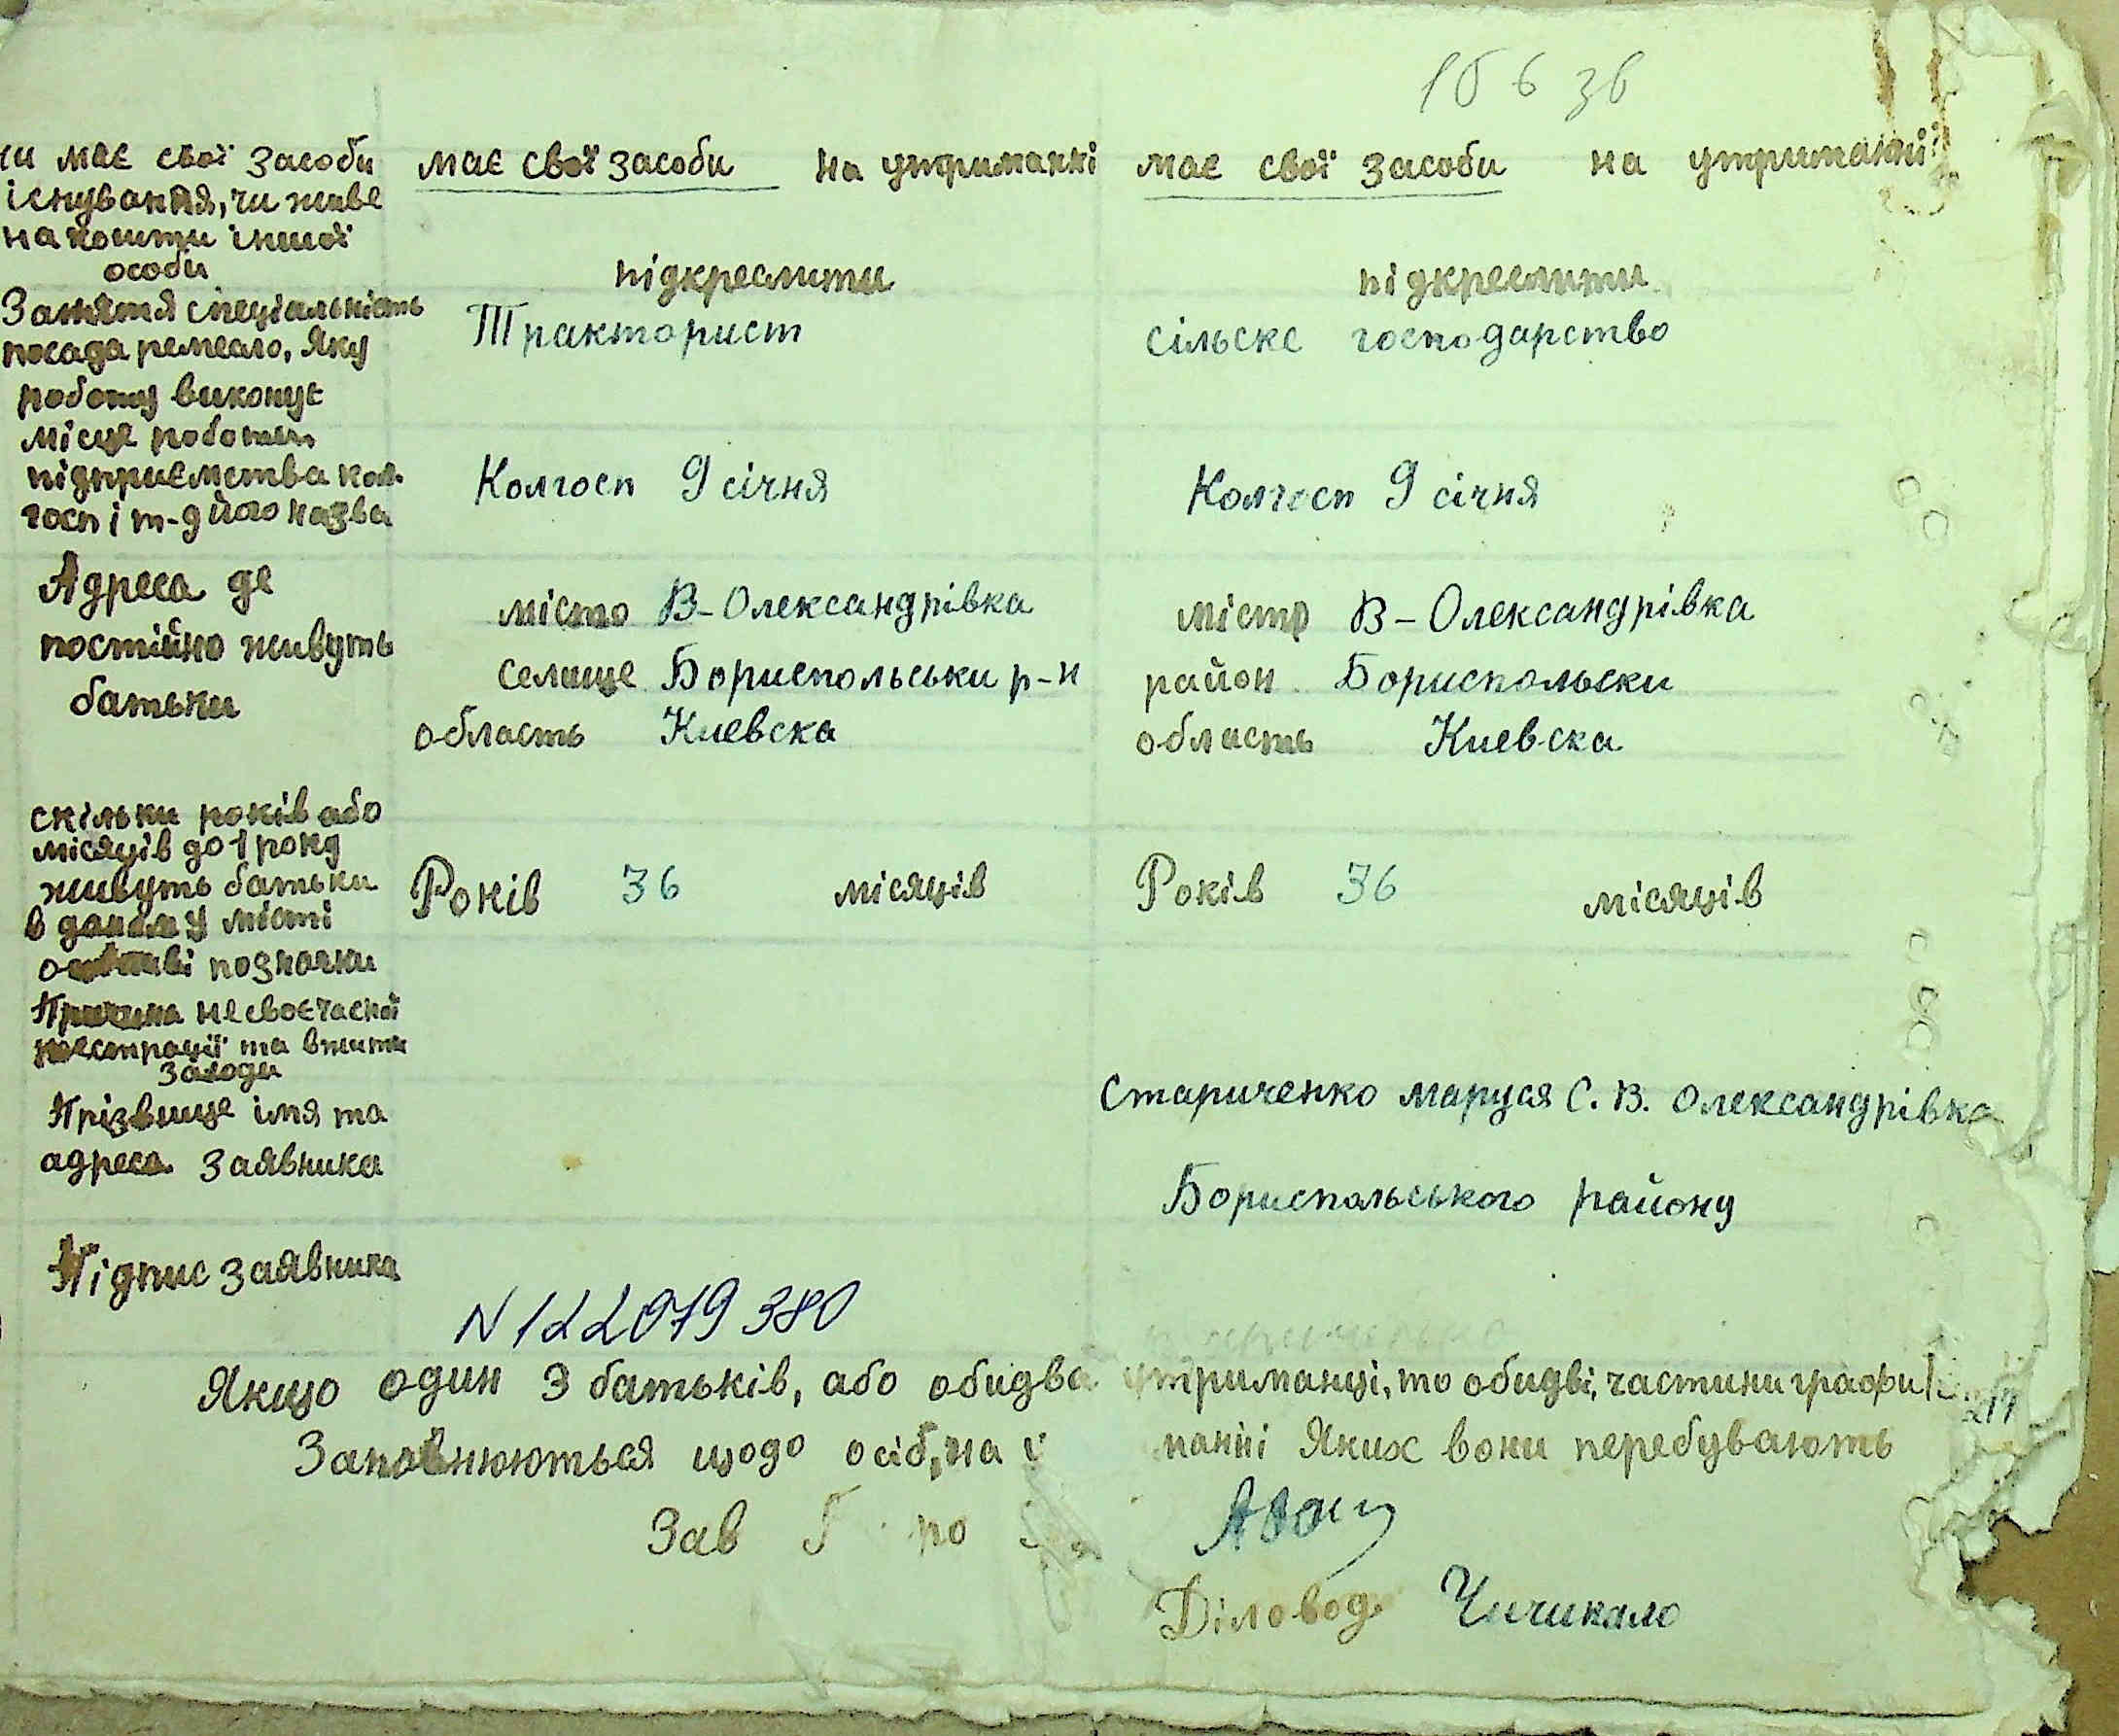 1б 6 36
чи має свої засоби має свої засоби на утриманні має свої засоби на утриманні
існування, чи живе
на кошти іншої
особи
підкреслити підкреслити
Заняття спеціальність
посада ремесло, яку Тракторист сільске господарство
роботу виконує
місце роботи
підприємства кол- Колгосп 9 січня Колгосп 9 січня
госп і т-д його назва
Адреса де місто В-Олександрівка місто В-Олександрівка
постійно живуть селище Бориспольськи р-н район Бориспольски
батьки область Киевска область Киевска
скільки років або
місяців до 1 року
живуть батьки Років 36 місяців Років 36 місяців
в даному місті
позначки
Причина несвоєчасної
та вжити
заходи
Прізвище імя та Стариченко Маруся С. В. Олександрівка
адреса заявника Бориспольського району
Підпис заявника
N 122079 380
Якщо один з батьків, або обидва утриманці, то обидві, частини графи
Заповнюються щодо осіб, на манні яких вони перебувають
Зав
Діловод Чичикало